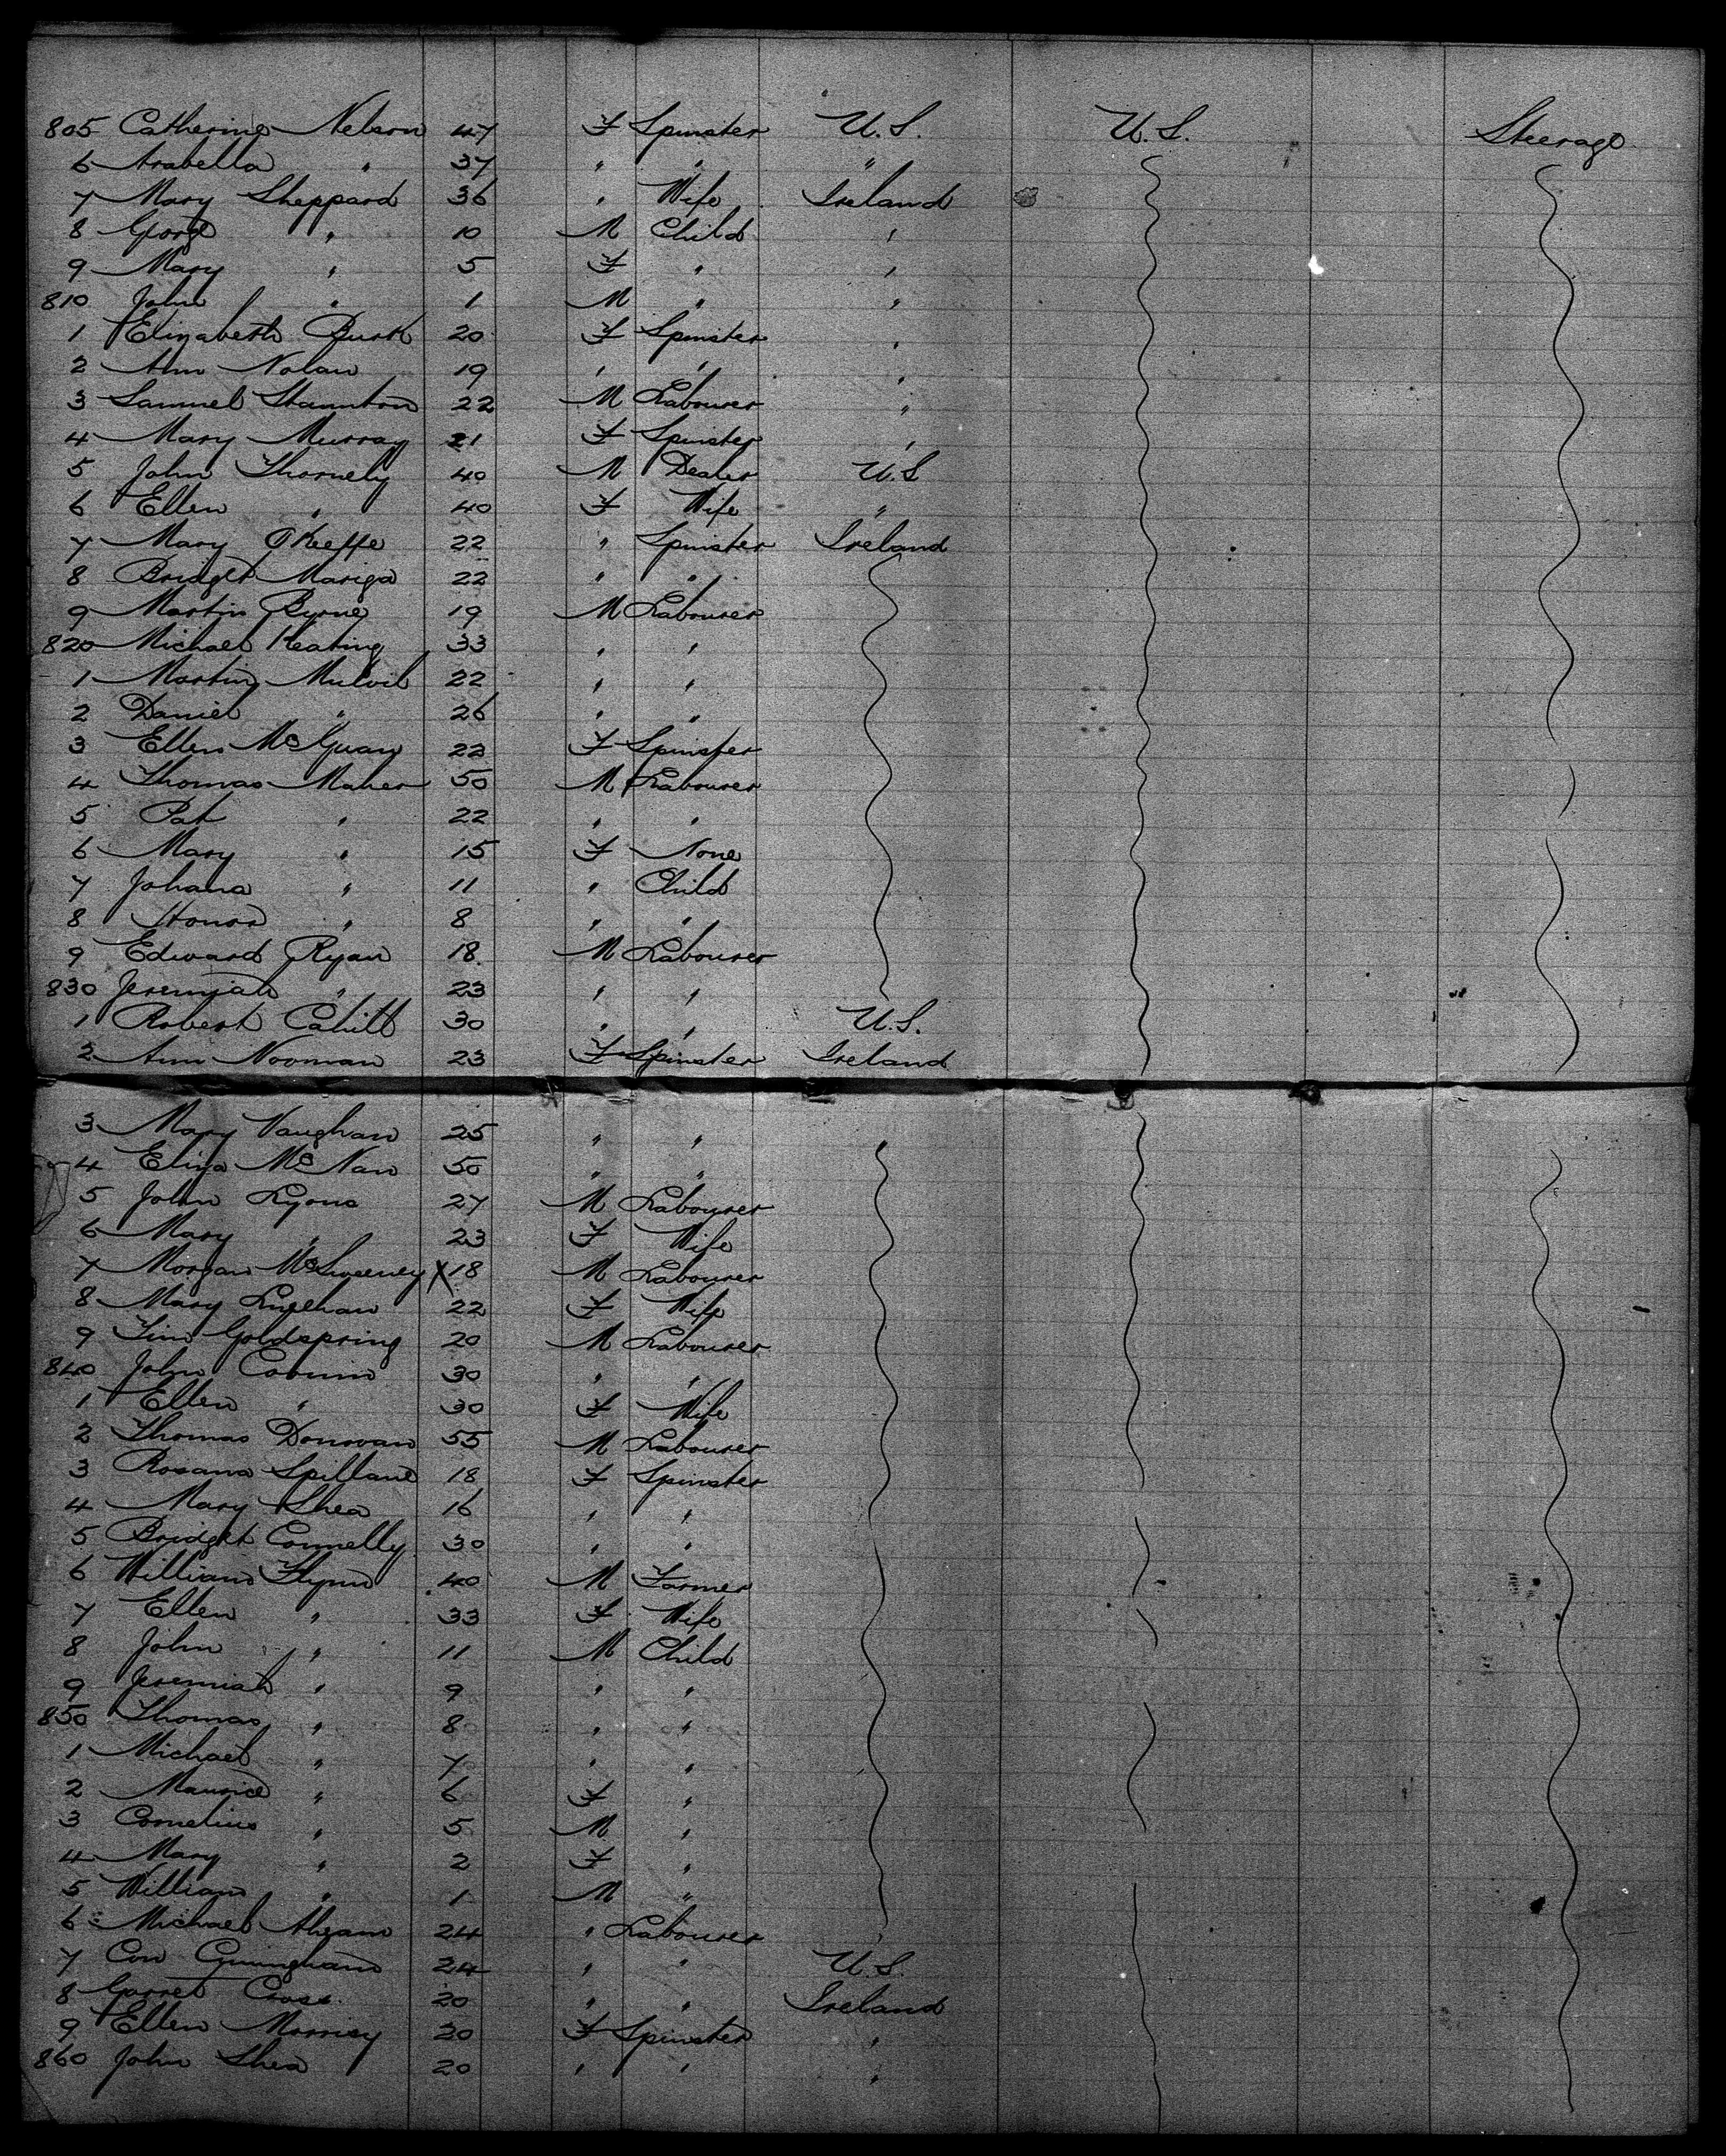 805 Catherine Nelson 47 F Spinster U.S. U.S. Steerage
6 Arabella " 37 " " "
7 Mary Sheppard 36 " Wife Ireland
8 George " 10 M Child "
9 Mary " 5 F " "
810 John " 1 M " "
1 Elizabeth Burk 20 F Spinster "
2 Ann Nolan 19 " " "
3 Samuel Staunton 22 M Labourer "
4 Mary Murray 21 F Spinster "
5 John Thornely 40 M Dealer U.S
6 Ellen " 40 F Wife "
7 Mary O'Keeffe 22 " Spinster Ireland
8 Bridget Mariga 22 " "
9 Martin Byrne 19 M Labourer
820 Michael Keating 33 " "
1 Martin Mulvil 22 " "
2 Daniel " 26 " "
3 Ellen McGuay 22 F Spinster
4 Thomas Maher 50 M Labourer
5 Pat " 22 " "
6 Mary " 15 F None
7 Johana " 11 " Child
8 Honor " 8 " "
9 Edward Ryan 18 M Labourer
830 Jeremiah " 23 " "
1 Robert Cahill 30 " " U.S.
2 Ann Nooman 23 F Spinster Ireland
3 Mary Vaughan 25 " " "
4 Eliza McNan 50 " "
5 John Lyons 27 M Labourer
6 Mary " 23 F Wife
7 Morgan McSweeney X 18 M Labourer
8 Mary 22 F Wife
9 Tim Goldspring 20 M Labourer
840 John 30 " "
1 Ellen " 30 F Wife
2 Thomas Donovan 55 M Labourer
3 Rosana Spillane 18 F Spinster
4 Mary Shea 16 " "
5 Bridget Connelly 30 " "
6 William Flynn 40 M Farmer
7 Ellen " 33 F Wife
8 John " 11 M Child
9 Jeremiah " 9 " "
850 Thomas " 8 " "
1 Michael " 7 " "
2 Maurice " 6 F "
3 Cornelius " 5 M "
4 Mary " 2 F "
5 William " 1 M "
6 Michael Ahearn 24 " Labourer "
7 Con 24 " " U.S.
8 Garret Cross 20 " " Ireland
9 Ellen Morrisy 20 F Spinster "
860 John Shea 20 " " "